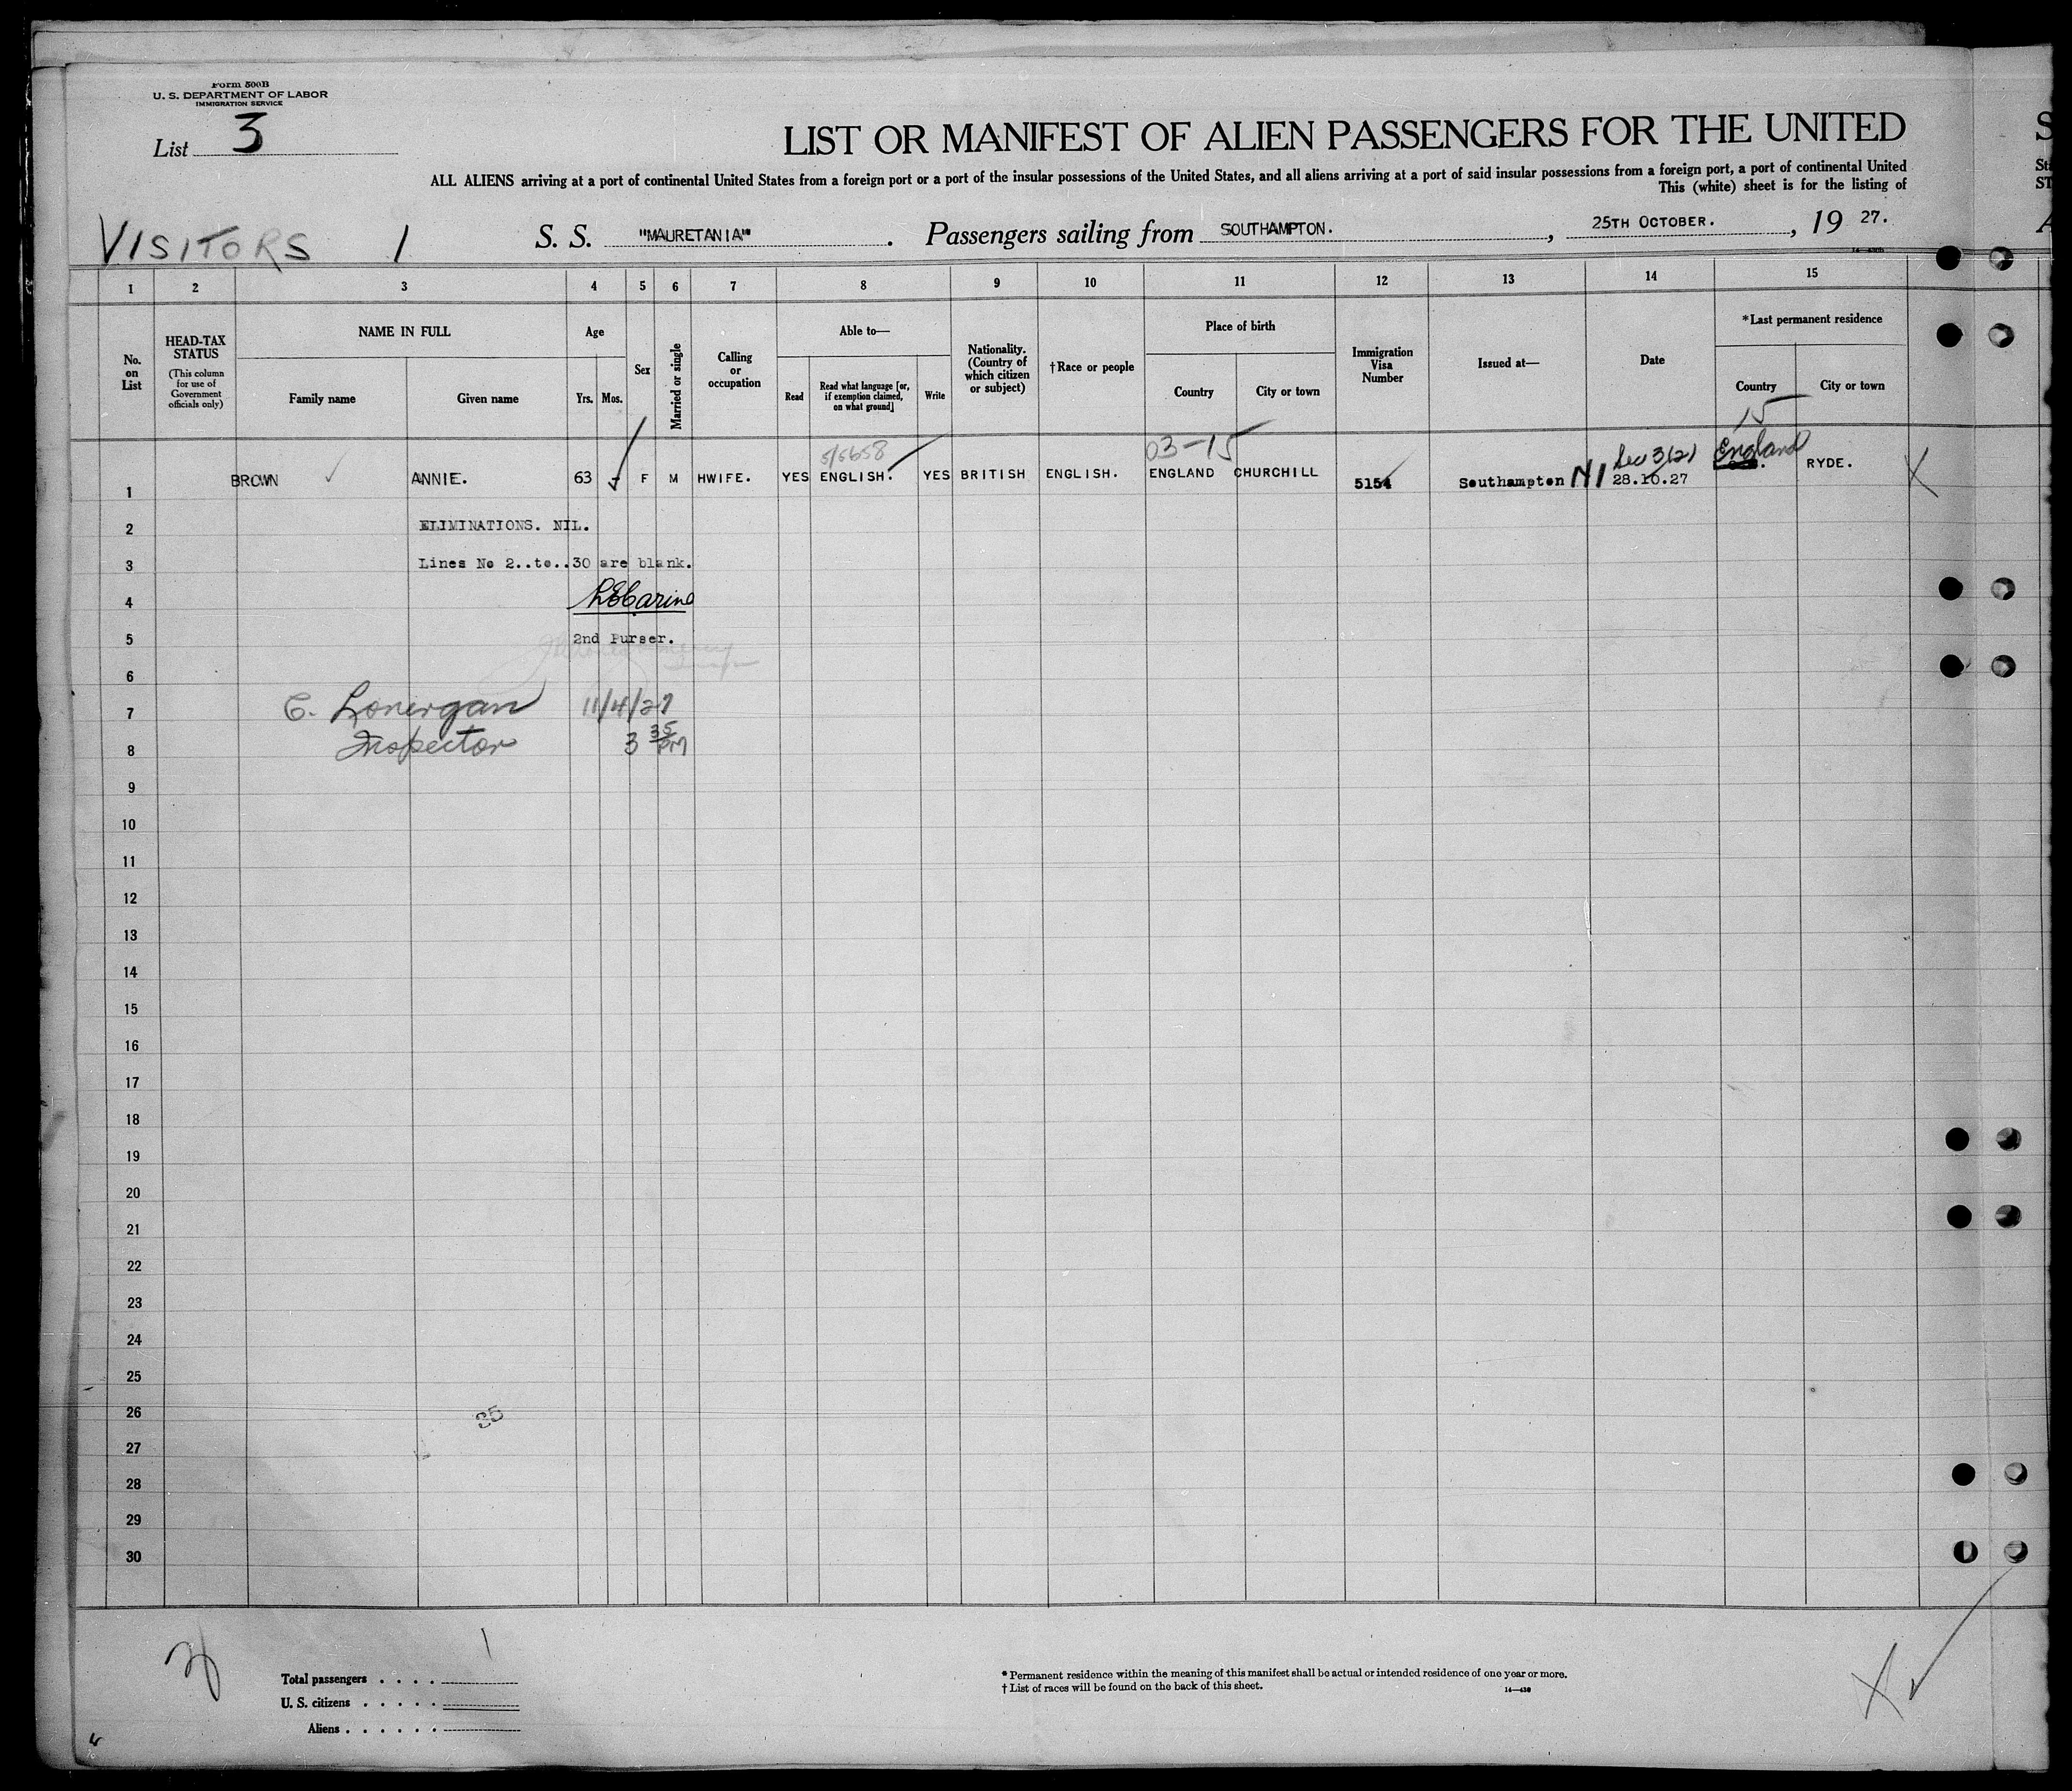 Form 500B
U. S. DEPARTMENT OF LABOR
IMMIGRATION SERVICE
List 3
LIST OR MANIFEST OF ALIEN PASSENGERS FOR THE UNITED
S
ALL ALIENS arriving at a port of continental United States from a foreign port or a port of the insular possessions of the United States, and all aliens arriving at a port of said insular possessions from a foreign port, a port of continental United
This (white) sheet is for the listing of
VISITORS 1 S. S. "MAURETANIA" . Passengers sailing from SOUTHAMPTON. , 25TH OCTOBER. , 19 27.
1 2 3 4 5 6 7 8 9 10 11 12 13 14 15
No. on List
HEAD-TAX STATUS
(This column for use of Government officials only)
NAME IN FULL
Family name
Given name
Age
Yrs. Mos.
Sex
Married or single
Calling or occupation
Able to—
Read
Read what language [or, if exemption claimed, on what ground]
Write
Nationality. (Country of which citizen or subject)
†Race or people
Place of birth
Country
City or town
Immigration Visa Number
Issued at—
Date
*Last permanent residence
Country
City or town
15
5/5658
03-15
Sec 3(2)
England
1 BROWN ANNIE. 63 - F M HWIFE. YES ENGLISH. YES BRITISH ENGLISH. ENGLAND CHURCHILL 5154 Southampton 28.10.27 RYDE.
2 ELIMINATIONS. NIL.
3 Lines No 2..to..30 are blank.
4
5 2nd Purser.
6
7 C. Lonergan 11/4/27
8 Inspector 3 35 PM
9
10
11
12
13
14
15
16
17
18
19
20
21
22
23
24
25
26 35
27
28
29
30
Total passengers . . . . 1
U. S. citizens . . . . .
Aliens . . . . . .
* Permanent residence within the meaning of this manifest shall be actual or intended residence of one year or more.
† List of races will be found on the back of this sheet.
14—430